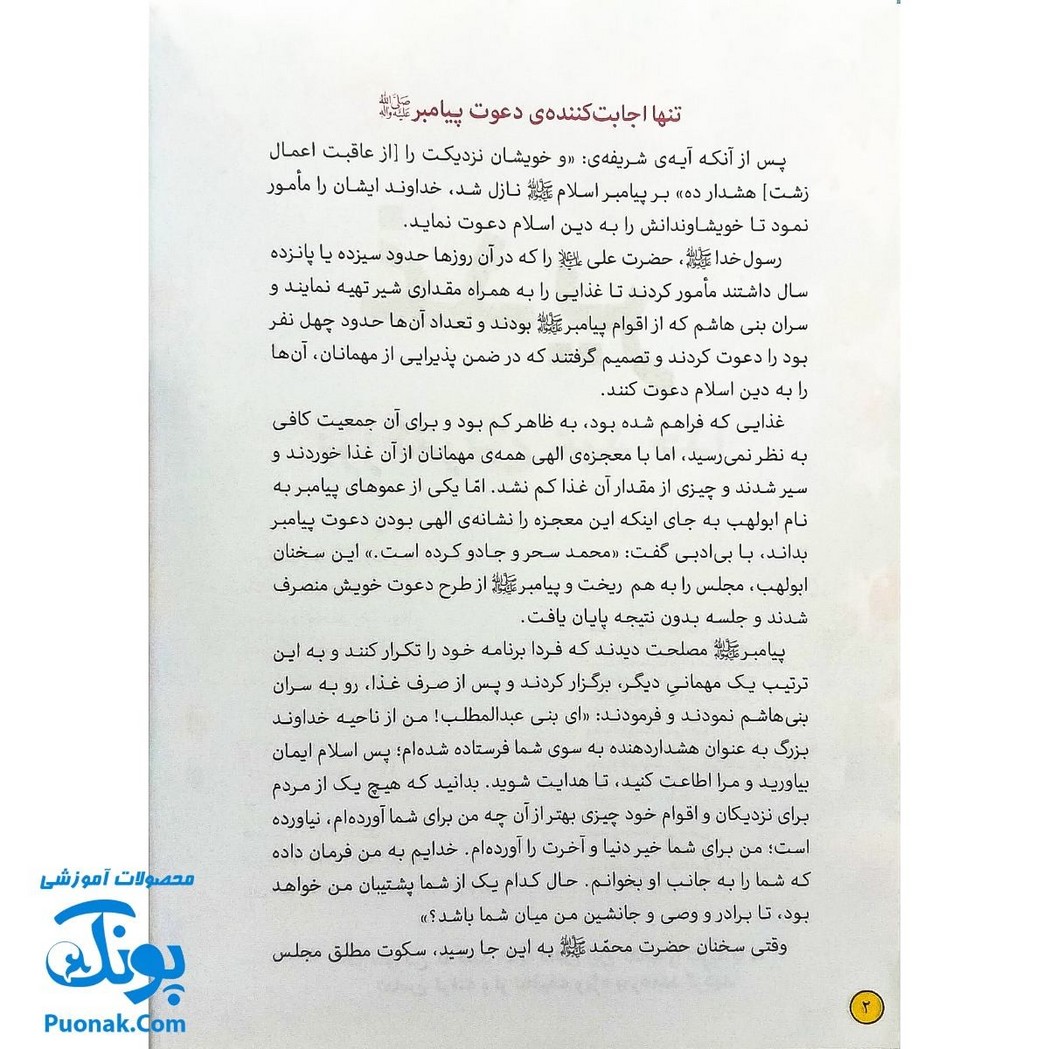 تنها اجابت‌کننده‌ی دعوت پیامبرﷺ
پس از آنکه آیه‌ی شریفه‌ی: «و خویشان نزدیکت را [از عاقبت اعمال
زشت] هشدار ده» بر پیامبر اسلامﷺ نازل شد، خداوند ایشان را مأمور
نمود تا خویشاوندانش را به دین اسلام دعوت نماید.
رسول خداﷺ، حضرت علی علیه‌السلام را که در آن روزها حدود سیزده یا پانزده
سال داشتند مأمور کردند تا غذایی را به همراه مقداری شیر تهیه نمایند و
سران بنی هاشم که از اقوام پیامبرﷺ بودند و تعداد آن‌ها حدود چهل نفر
بود را دعوت کردند و تصمیم گرفتند که در ضمن پذیرایی از مهمانان، آن‌ها
را به دین اسلام دعوت کنند.
غذایی که فراهم شده بود، به ظاهر کم بود و برای آن جمعیت کافی
به نظر نمی‌رسید، اما با معجزه‌ی الهی همه‌ی مهمانان از آن غذا خوردند و
سیر شدند و چیزی از مقدار آن غذا کم نشد. امّا یکی از عموهای پیامبر به
نام ابولهب به جای اینکه این معجزه را نشانه‌ی الهی بودن دعوت پیامبر
بداند، با بی‌ادبی گفت: «محمد سحر و جادو کرده است.» این سخنان
ابولهب، مجلس را به هم ریخت و پیامبرﷺ از طرح دعوت خویش منصرف
شدند و جلسه بدون نتیجه پایان یافت.
پیامبرﷺ مصلحت دیدند که فردا برنامه خود را تکرار کنند و به این
ترتیب یک مهمانیِ دیگر، برگزار کردند و پس از صرف غذا، رو به سران
بنی‌هاشم نمودند و فرمودند: «ای بنی عبدالمطلب! من از ناحیه خداوند
بزرگ به عنوان هشداردهنده به سوی شما فرستاده شده‌ام؛ پس اسلام ایمان
بیاورید و مرا اطاعت کنید، تا هدایت شوید. بدانید که هیچ یک از مردم
برای نزدیکان و اقوام خود چیزی بهتر از آن چه من برای شما آورده‌ام، نیاورده
است؛ من برای شما خیر دنیا و آخرت را آورده‌ام. خدایم به من فرمان داده
که شما را به جانب او بخوانم. حال کدام یک از شما پشتیبان من خواهد
بود، تا برادر و وصی و جانشین من میان شما باشد؟»
وقتی سخنان حضرت محمّدﷺ به این جا رسید، سکوت مطلق مجلس
۲
محصولات آموزشی
پونک
Puonak.Com